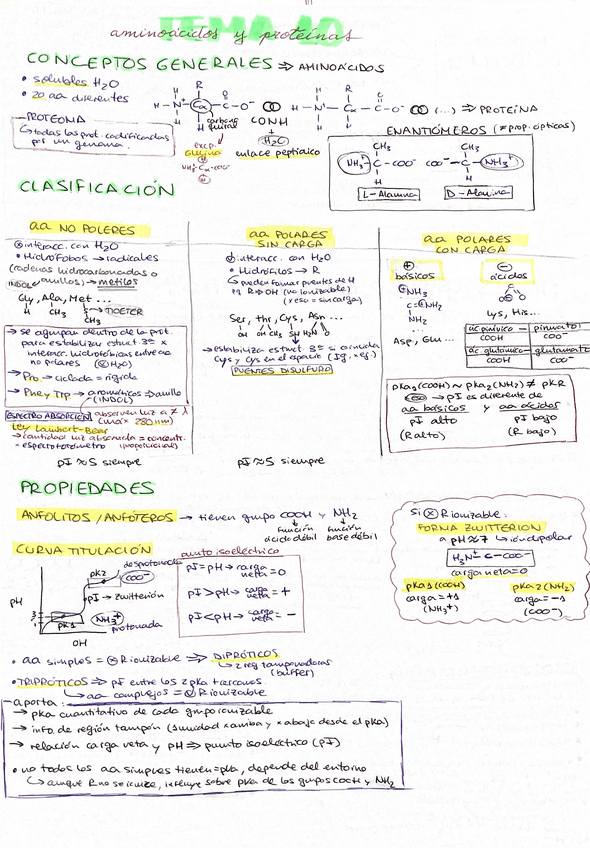 TEMA 10
aminoácidos y proteínas
CONCEPTOS GENERALES ⇒ AMINOÁCIDOS
• solubles H2O
• 20 aa diferentes
PROTEOMA
↳ todas las prot. codificadas
por un genoma.
carbono
quiral
excp.
Glicina
CONH
+
H2O
enlace peptídico
(...) ⇒ PROTEÍNA
ENANTIÓMEROS (≠ prop. ópticas)
CH3
NH3+ C - COO-
H
L-Alanina
CH3
COO- - C - NH3+
H
D-Alanina
CLASIFICACIÓN
aa NO POLERES
interacc. con H2O
• Hidrófobos → radicales
(cadenas hidrocarbonadas o
anillos) → metilos
INDOL
Gly, Ala, Met ...
H CH3 S CH3
→ DOETER
→ se agrupan dentro de la prot.
para estabilizar estruct. 3ª x
interacc. hidrofóbicas entre aa
no polares (H2O)
→ Pro → ciclada = rígida
→ Phe y Trp → aromáticos → anillo
(INDOL)
ESPECTRO ABSORCIÓN absorben luz a ≠ λ
(max 280nm)
Ley Lambert-Beer
→ cantidad luz absorbida = concentr.
- espectrofotómetro (proporcional)
pI ≈ 5 siempre
aa POLARES
SIN CARGA
interacc. con H2O
• Hidrófilos → R
↳ pueden formar puentes de H
R ⇒ OH (no ionizable)
(r eso = sin carga)
Ser, thr, Cys, Asn ...
OH OH CH3 SH H2N O
→ estabiliza estruct 3ª si coincida
Cys y Cys en el espacio (Ig, x ej.)
PUENTES DISULFURO
pI ≈ 5 siempre
aa POLARES
CON CARGA
+
básicos
-
ácidos
NH3
C=NH2
NH2
Lys, His...
Asp, Glu ...
ác. pirúvico - piruvato
COOH COO-
ác. glutámico - glutamato
COOH COO-
pka1 (COOH) ~ pka2 (NH2) ≠ pkR
→ pI es diferente de
aa básicos y aa ácidos
pI alto pI bajo
(R alto) (R bajo)
PROPIEDADES
ANFOLITOS / ANFÓTEROS → tienen grupo COOH y NH2
función
ácido débil
función
base débil
CURVA TITULACIÓN
pH
desprotonada
COO-
pk2
pI → zwitterión
NH3+
protonada
pk1
OH
punto isoeléctrico
pI = pH → carga
neta = 0
pI > pH → carga
neta = +
pI < pH → carga
neta = -
Si R ionizable:
FORMA ZWITTERION
a pH ≈ 7 ↳ ion dipolar
H3N+ - C - COO-
carga neta = 0
pka1 (COOH) pka2 (NH2)
carga = +1 carga = -1
(NH3+) (COO-)
• aa simples = R ionizable ⇒ DIPRÓTICOS
↳ 2 reg tamponadoras
(buffer)
• TRIPRÓTICOS ⇒ pI entre los 2 pka + cercanos
↳ aa complejos = R ionizable
aporta:
→ pka cuantitativo de cada grupo ionizable
→ info. de región tampón (1 unidad x arriba y x abajo desde el pka)
→ relación carga neta y pH ⇒ punto isoeléctrico (pI)
• no todos los aa simples tienen = pka, depende del entorno
↳ aunque R no se ionice, influye sobre pka de los grupos COOH y NH2